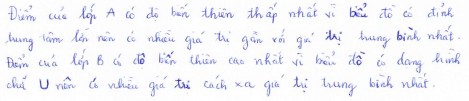 Điểm của lớp A có độ biến thiên thấp nhất vì biểu đồ có đỉnh
trung tâm lớn nên có nhiều giá trị gần với giá trị trung bình nhất.
Điểm của lớp B có độ biến thiên cao nhất vì biểu đồ có dạng hình
chữ U nên có nhiều giá trị cách xa giá trị trung bình nhất.